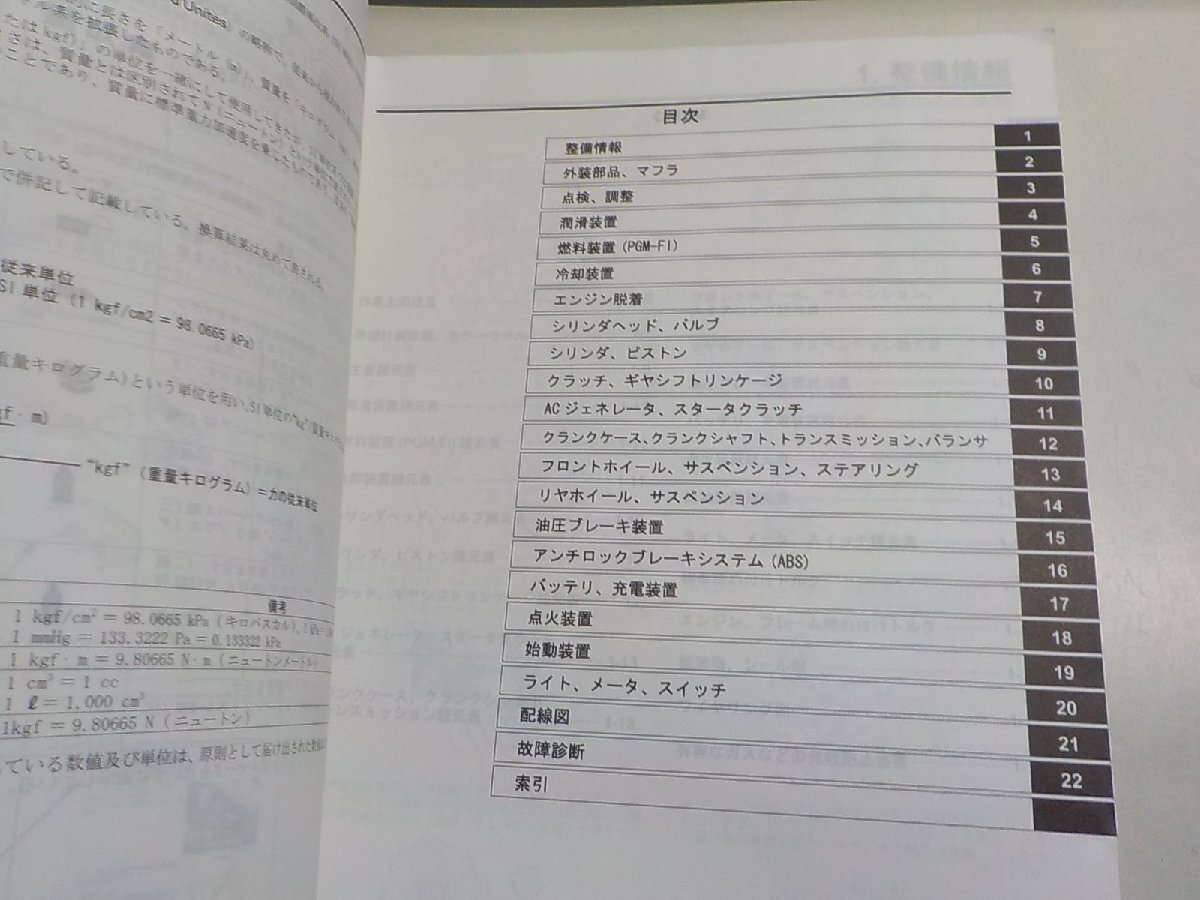 d'Unités)の略称で、
に長さを「メートル(m)」、質量を「キログラム
トル系を拡張したものである。
たはkgf)」の単位を一緒にして使用してきたが、SI単位
さは、質量とは区別されてN(ニュートン)という
ことであり、質量に標準重力加速度を乗じたものである。
している。
で併記して記載している。換算結果は丸めて表される。
従来単位
SI単位 (1 kgf/cm2 = 98.0665 kPa)
重量キログラム)という単位を用い、SI単位の"kg"(質量キ
gf・m)
"kgf"(重量キログラム)=力の従来単位
備考
1 kgf/cm² = 98.0665 kPa (キロパスカル)、
1 mmHg = 133.3222 Pa = 0.133322 kPa
1 kgf・m = 9.80665 N・m (ニュートンメートル)
1 cm³ = 1 cc
1 ℓ = 1,000 cm³
1kgf = 9.80665 N (ニュートン)
ている数値及び単位は、原則として届け出された数値
1. 整備情報
目次
整備情報 1
外装部品、マフラ 2
点検、調整 3
潤滑装置 4
燃料装置 (PGM-FI) 5
冷却装置 6
エンジン脱着 7
シリンダヘッド、バルブ 8
シリンダ、ピストン 9
クラッチ、ギヤシフトリンケージ 10
ACジェネレータ、スタータクラッチ 11
クランクケース、クランクシャフト、トランスミッション、バランサ 12
フロントホイール、サスペンション、ステアリング 13
リヤホイール、サスペンション 14
油圧ブレーキ装置 15
アンチロックブレーキシステム (ABS) 16
バッテリ、充電装置 17
点火装置 18
始動装置 19
ライト、メータ、スイッチ 20
配線図 21
故障診断 22
索引